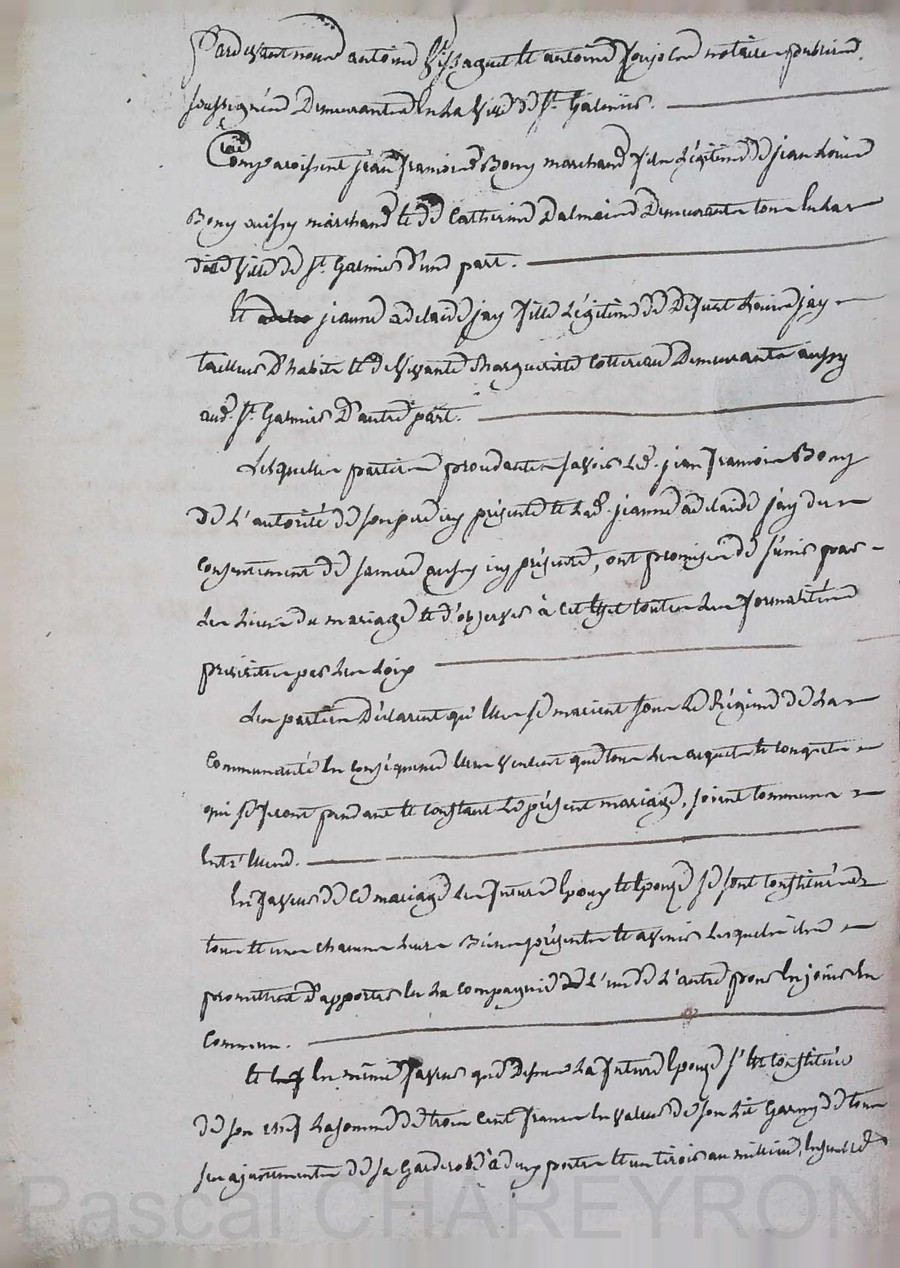 Pardevant nous antoine antoine notaires publics
soussignés Demeurants en la ville de St. Galmier.
Comparoissent jean françois Bony marchand fils légitime de jean Louis
Bony aussy marchand et de Catherine Dalmais Demeurants tous en la
ditte ville de St. Galmier d'une part.
Et jeanne adelaide jay fille Légitime de Defunt Louis jay
tailleur D'habits et de vivante Marguerite Cottereau Demeurante aussy
aud. St. Galmier D'autre part.
Lesquelles parties procedantes savoir Led. jean françois Bony
De L'autorité de son pere icy présent et Lad. jeanne adelaide jay du
consentement de sa mere aussy icy présente, ont promis de s'unir par
les Liens du mariage et d'observer à cet effet toutes Les formalités
prescrites par Les Loix
Les parties Déclarent qu'elles se marient sous Le Régime de La
Communauté en conséquence elles veulent que tous Les acquets et conquets
qui se feront pendant et constant Le présent mariage, soient communs
entr'elles.
En faveur de ce mariage Les futurs Epoux et Epouse se sont constitués
tous et uns chacuns Leurs Biens présents et avenir Lesquels ils
promettent D'apporter en La compagnie de L'un de L'autre pour en jouir en
Commun.
Et en même faveur que Dessus La future Epouse s'est constituée
de son chef La somme de trois cent francs en valeur de son Lit Garny de tous
ses ajustements de sa Garderobe à deux portes et un tiroir au milieu, ensemble
Pascal CHAREYRON